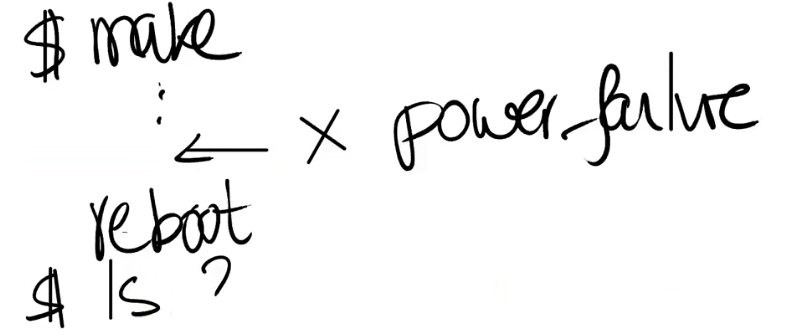 $ make
:
← X power failure
reboot
$ ls ?